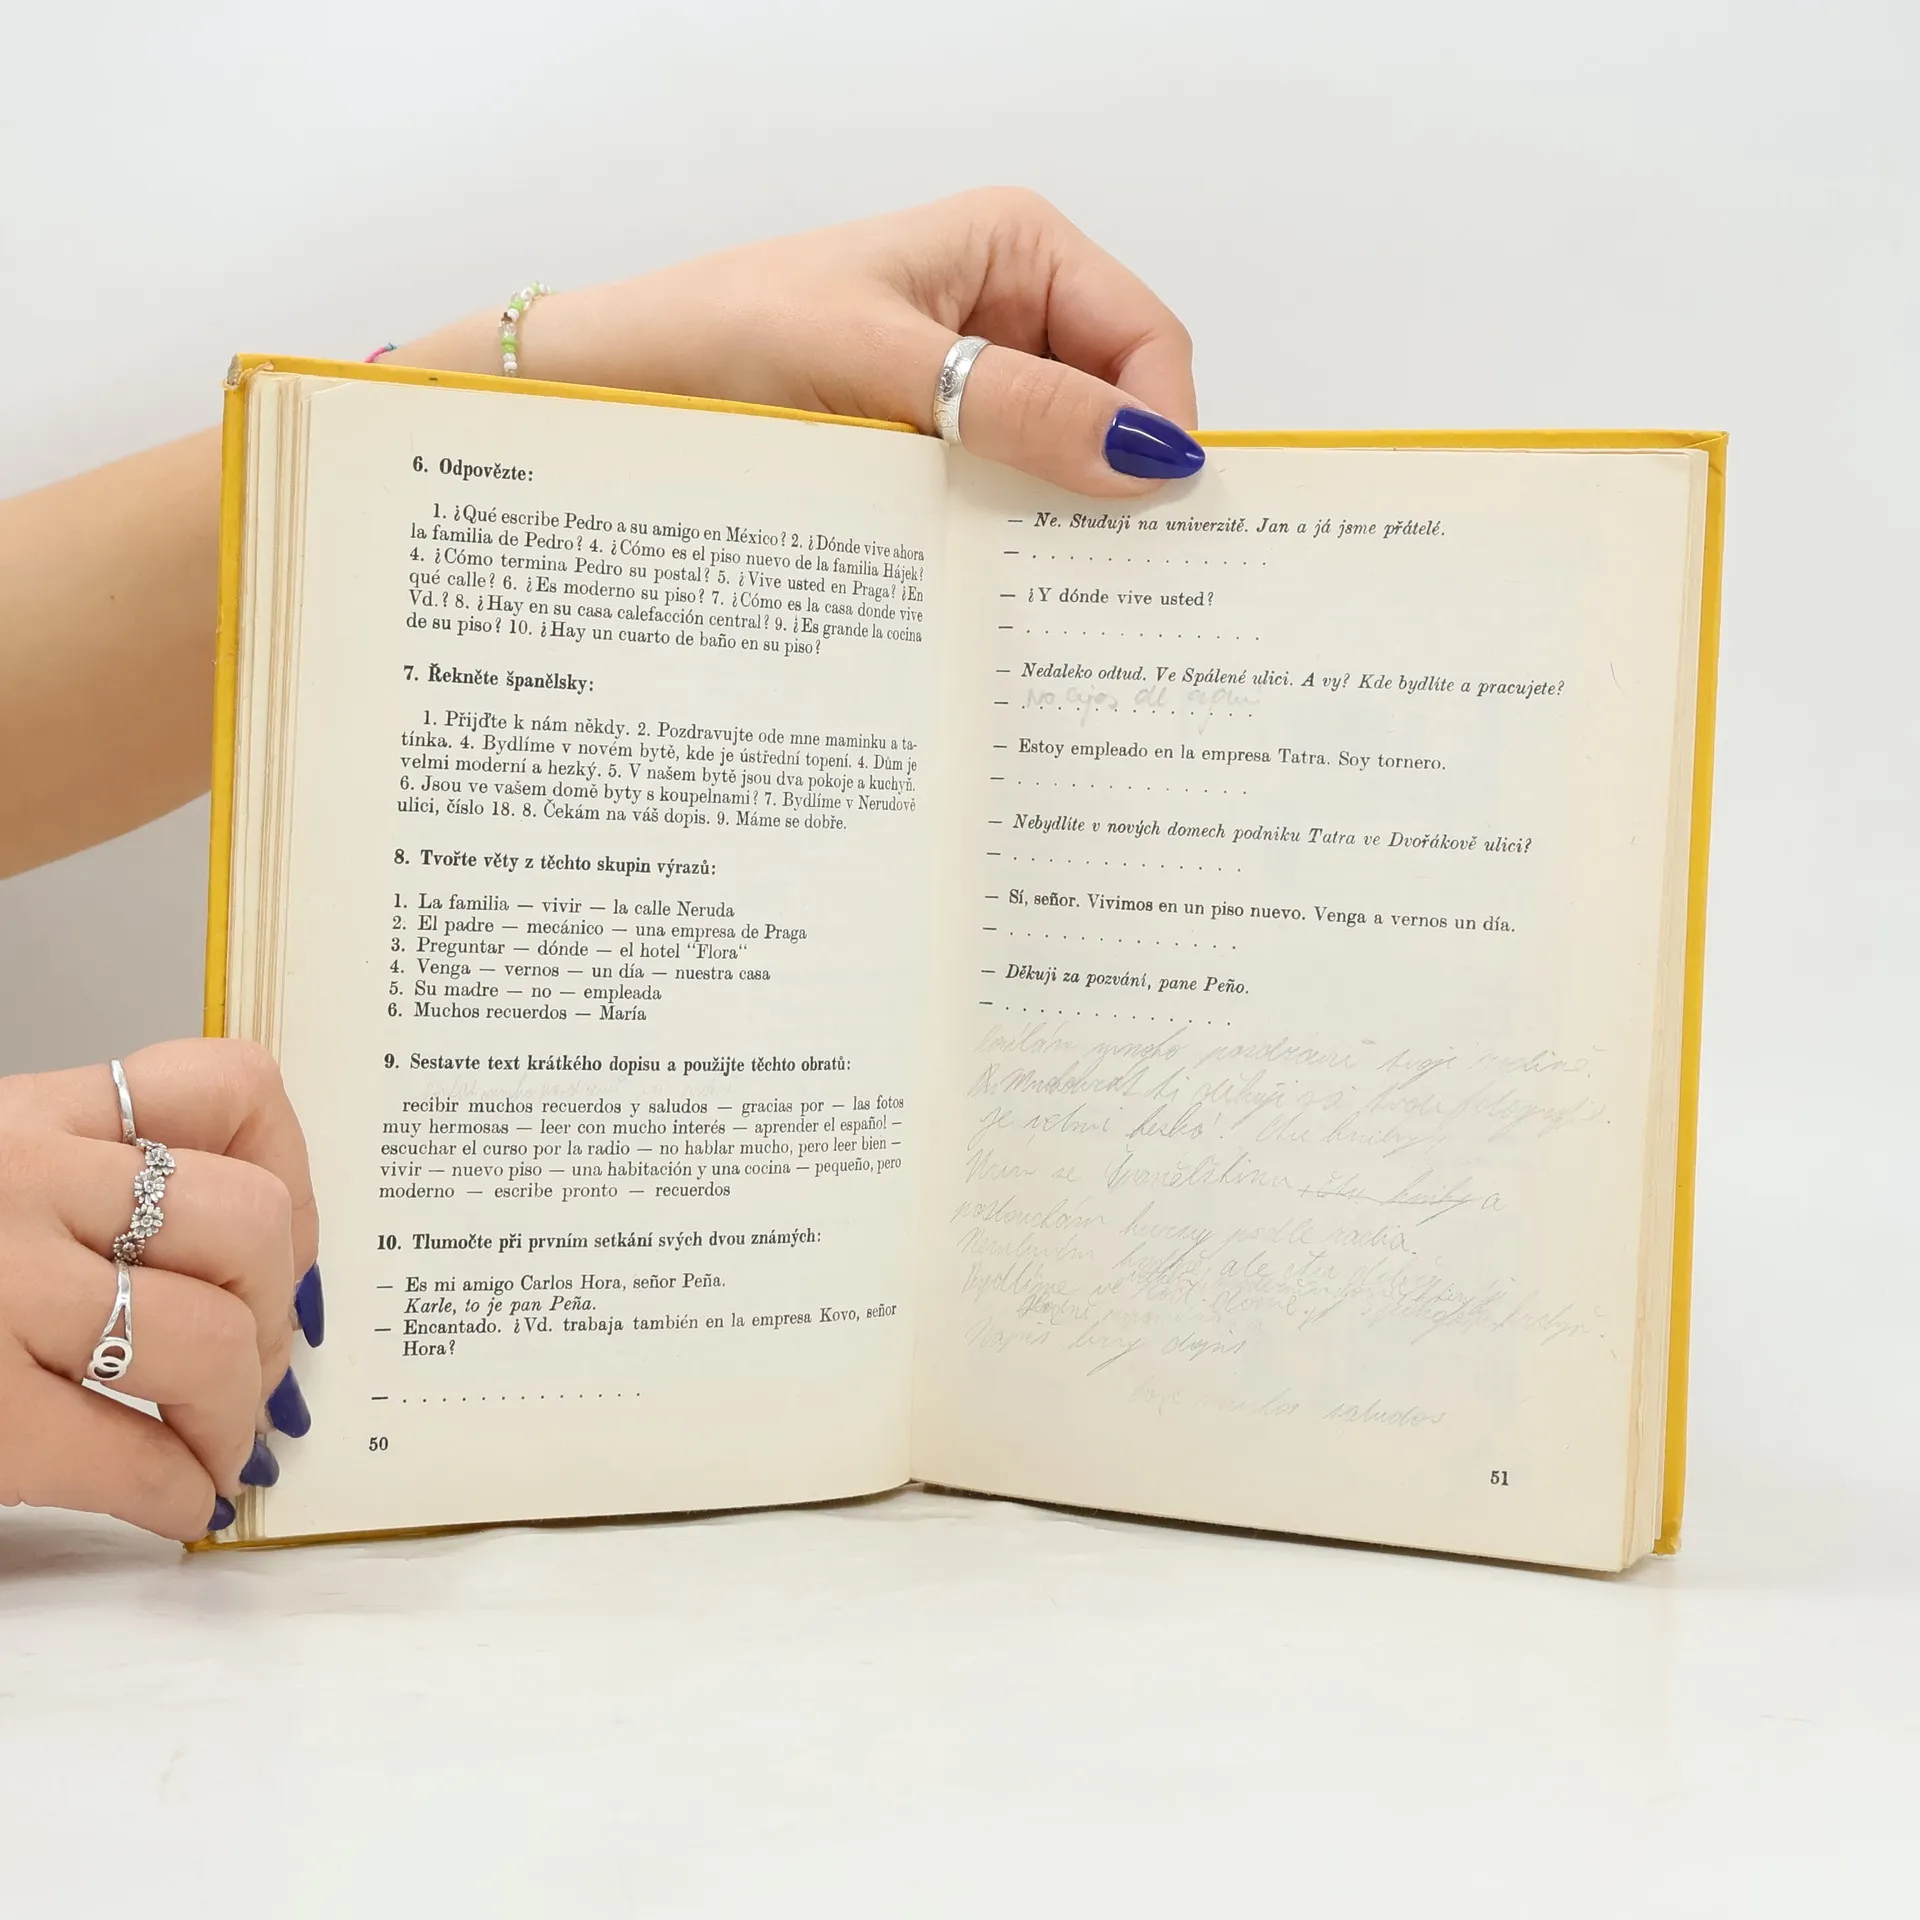 6. Odpovězte:
1. ¿Qué escribe Pedro a su amigo en México? 2. ¿Dónde vive ahora
la familia de Pedro? 4. ¿Cómo es el piso nuevo de la familia Hájek?
4. ¿Cómo termina Pedro su postal? 5. ¿Vive usted en Praga? ¿En
qué calle? 6. ¿Es moderno su piso? 7. ¿Cómo es la casa donde vive
Vd.? 8. ¿Hay en su casa calefacción central? 9. ¿Es grande la cocina
de su piso? 10. ¿Hay un cuarto de baño en su piso?
7. Řekněte španělsky:
1. Přijďte k nám někdy. 2. Pozdravujte ode mne maminku a ta-
tínka. 4. Bydlíme v novém bytě, kde je ústřední topení. 4. Dům je
velmi moderní a hezký. 5. V našem bytě jsou dva pokoje a kuchyň.
6. Jsou ve vašem domě byty s koupelnami? 7. Bydlíme v Nerudově
ulici, číslo 18. 8. Čekám na váš dopis. 9. Máme se dobře.
8. Tvořte věty z těchto skupin výrazů:
1. La familia — vivir — la calle Neruda
2. El padre — mecánico — una empresa de Praga
3. Preguntar — dónde — el hotel “Flora“
4. Venga — vernos — un día — nuestra casa
5. Su madre — no — empleada
6. Muchos recuerdos — María
9. Sestavte text krátkého dopisu a použijte těchto obratů:
recibir muchos recuerdos y saludos — gracias por — las fotos
muy hermosas — leer con mucho interés — aprender el español —
escuchar el curso por la radio — no hablar mucho, pero leer bien —
vivir — nuevo piso — una habitación y una cocina — pequeño, pero
moderno — escribe pronto — recuerdos
10. Tlumočte při prvním setkání svých dvou známých:
— Es mi amigo Carlos Hora, señor Peña.
Karle, to je pan Peña.
— Encantado. ¿Vd. trabaja también en la empresa Kovo, señor
Hora?
— . . . . . . . . . . . . .
50
— Ne. Studuji na univerzitě. Jan a já jsme přátelé.
— . . . . . . . . . . . . .
— ¿Y dónde vive usted?
— . . . . . . . . . . . . .
— Nedaleko odtud. Ve Spálené ulici. A vy? Kde bydlíte a pracujete?
— . . . . . . . . . . . . .
— Estoy empleado en la empresa Tatra. Soy tornero.
— . . . . . . . . . . . . .
— Nebydlíte v nových domech podniku Tatra ve Dvořákově ulici?
— . . . . . . . . . . . . .
— Sí, señor. Vivimos en un piso nuevo. Venga a vernos un día.
— . . . . . . . . . . . . .
— Děkuji za pozvání, pane Peño.
— . . . . . . . . . . . . .
je velmi
se
a
poslouchám kurzy podle radia.
ale čtu
Bydlíme ve
saludos
51